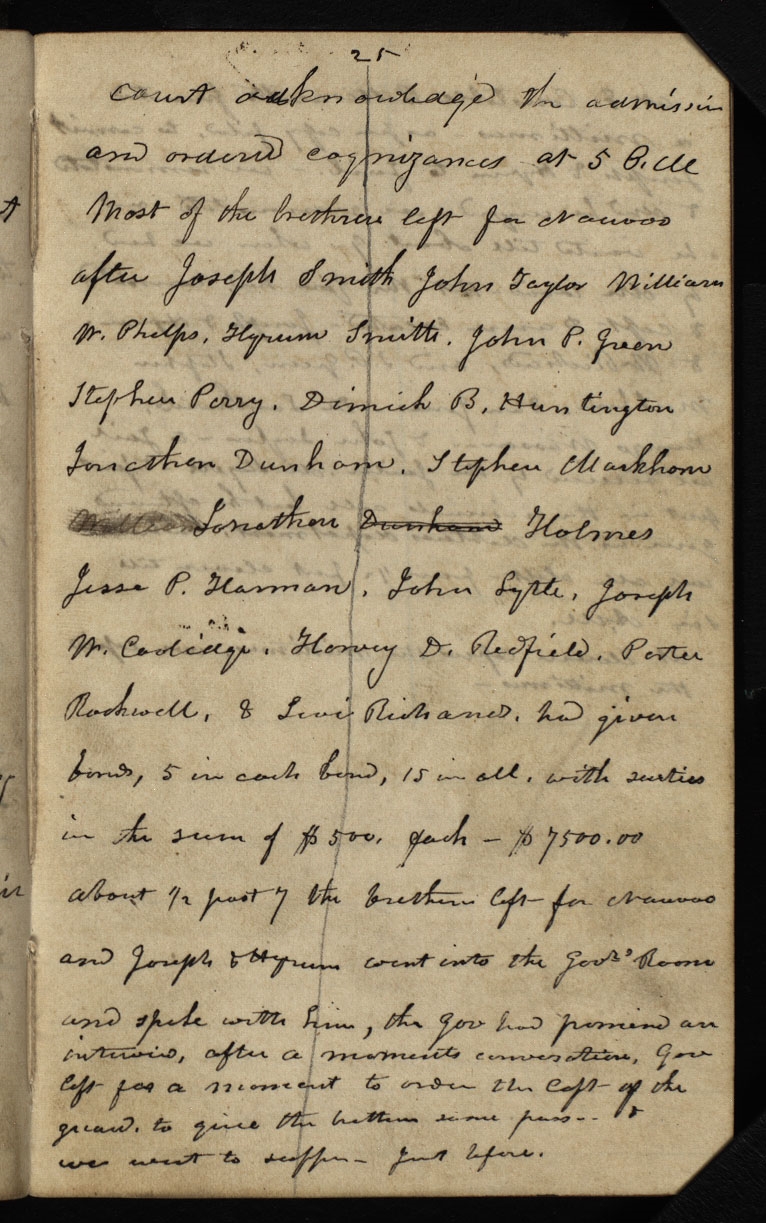 25
court acknowledged the admission
and ordered cognizances at 5 P.M
Most of the brethren left for Nauvoo
after Joseph Smith John Taylor William
W. Phelps, Hyrum Smith. John P. Green
Stephen Perry. Dimick B. Huntington
Jonathan Dunham. Stephen Markham
Jonathan Dunham Holmes
Jesse P. Harman. John Lytle, Joseph
W. Coolidge. Harvey D. Redfield. Porter
Rockwell, & Levi Richards. had given
bonds, 5 in each bond, 15 in all. with surties
in the sum of $500. each — $7500.00
about 1/2 past 7 the brethren left for Nauvoo
and Joseph & Hyrum went into the Govrs' Room
and spoke with him, the Gov had promised an
interview, after a moments conversation, Gov
left for a moment to order the Capt of the
guard. to give the brethren some pass-- &
we went to supper — Just before.